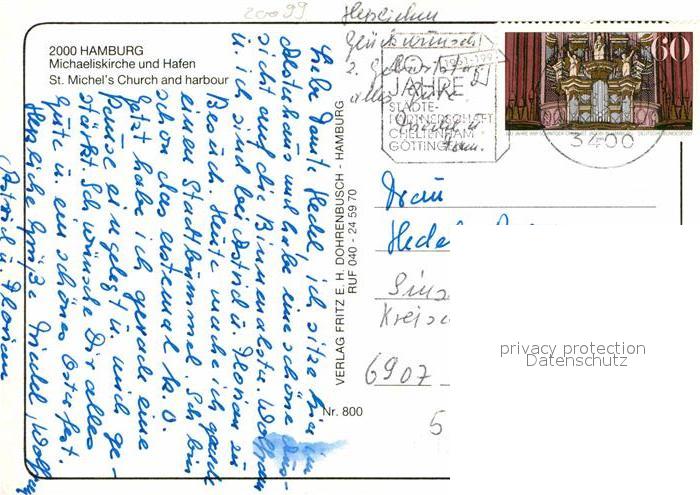 20099
Herzlichen
Glückwunsch
2.
alles
2000 HAMBURG
Michaeliskirche und Hafen
St. Michel's Church and harbour
JAHRE
STÄDTE-
PARTNERSCHAFT
CHELTENHAM
GÖTTINGEN
60
3400
Liebe Tante Hedel, ich sitze hier im
Alsterhaus und habe eine schöne Aus-
sicht auf die Binnenalster. Wolfram
u. ich sind bei Astrid u. Florian zu
Besuch. Heute mache ich gerade
einen Stadtbummel. Ich bin
schon das erstemal k.o.
Jetzt habe ich gerade eine
Pause eingelegt u. mich ge-
stärkt. Ich wünsche Dir alles
Gute u. ein schönes Osterfest.
Herzliche Grüße
Astrid u. Florian
VERLAG FRITZ E. H. DOHRENBUSCH - HAMBURG
RUF 040 - 24 59 70
Nr. 800
Frau
6907
5
privacy protection
Datenschutz